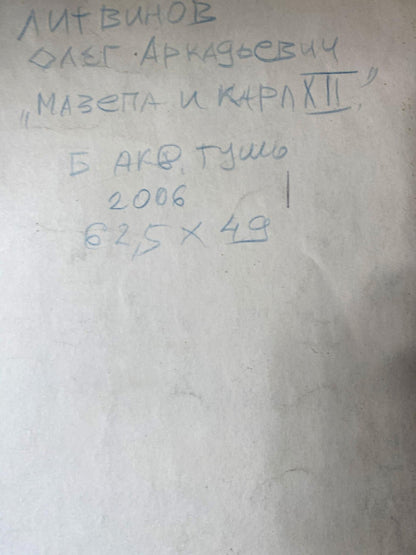 ЛИТВИНОВ
ОЛЕГ АРКАДЬЕВИЧ
„МАЗЕПА И КАРЛ XII”
Б АКВ, ТУШЬ
2006
62,5 × 49